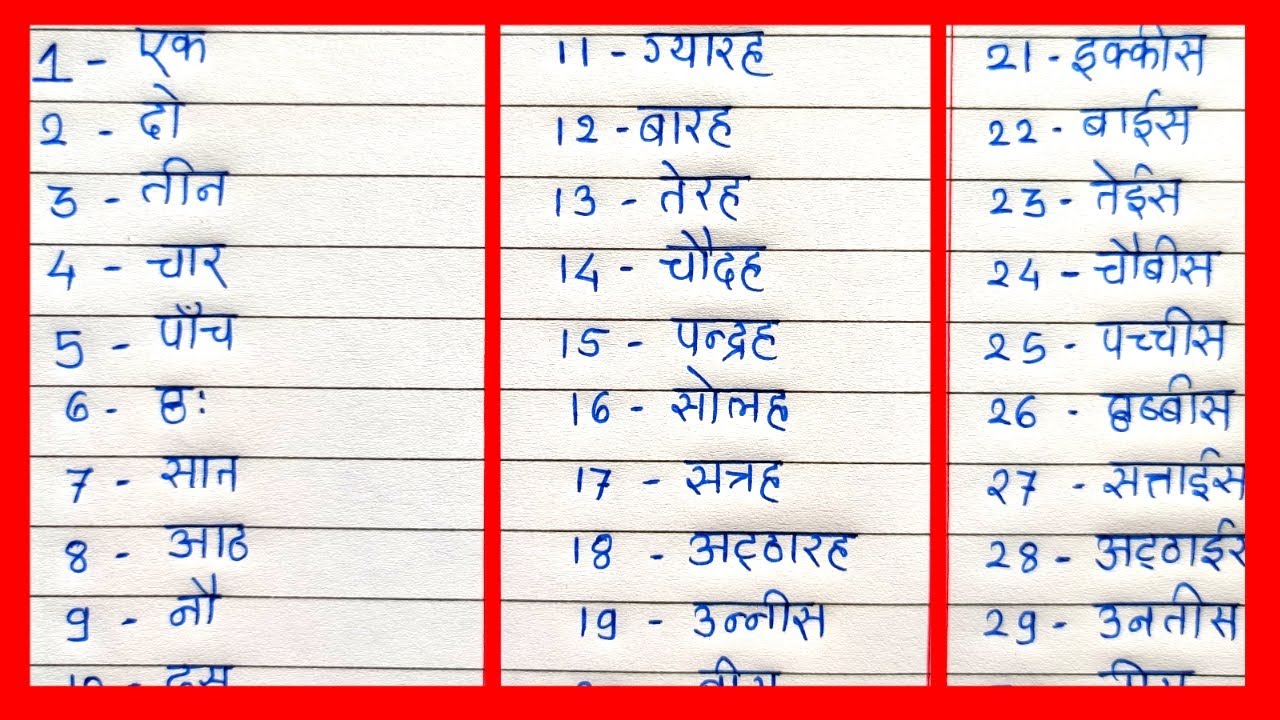 1 - एक
2 - दो
3 - तीन
4 - चार
5 - पाँच
6 - छः
7 - सात
8 - आठ
9 - नौ
10 - दस
11 - ग्यारह
12 - बारह
13 - तेरह
14 - चौदह
15 - पन्द्रह
16 - सोलह
17 - सत्रह
18 - अट्ठारह
19 - उन्नीस
बीस
21 - इक्कीस
22 - बाईस
23 - तेईस
24 - चौबीस
25 - पच्चीस
26 - छब्बीस
27 - सत्ताईस
28 - अट्ठाईस
29 - उनतीस